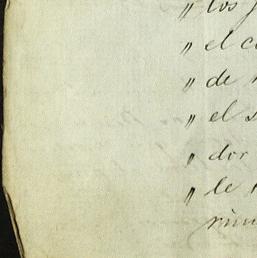 〃 los
〃 el c
〃 de
〃 el s
〃 dor
〃 le
rim